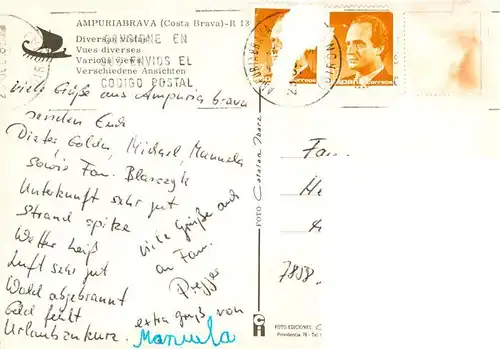 AMPURIABRAVA (Costa Brava)-R 13
Diversas vistas
Vues diverses
Various views
Verschiedene Ansichten
CONSIGNE EN
SUS ENVIOS EL
CODIGO POSTAL
correos
correos
viele Grüße aus Ampuria brava
senden Euch
Dieter, Golda, Michael, Manuela
sowie Fam. Blaszczyk
Unterkunft sehr gut
Strand spitze
Wetter heiß
Luft sehr gut
Wald abgebrannt
Geld fehlt
Urlaub zu kurz.
viele Grüße auch
an Fam.
extra gruß von
Manuela
FOTO Catalan Ibarz
Fam.
He
7858
FOTO EDICIONES
Providencia, 78 - Tel